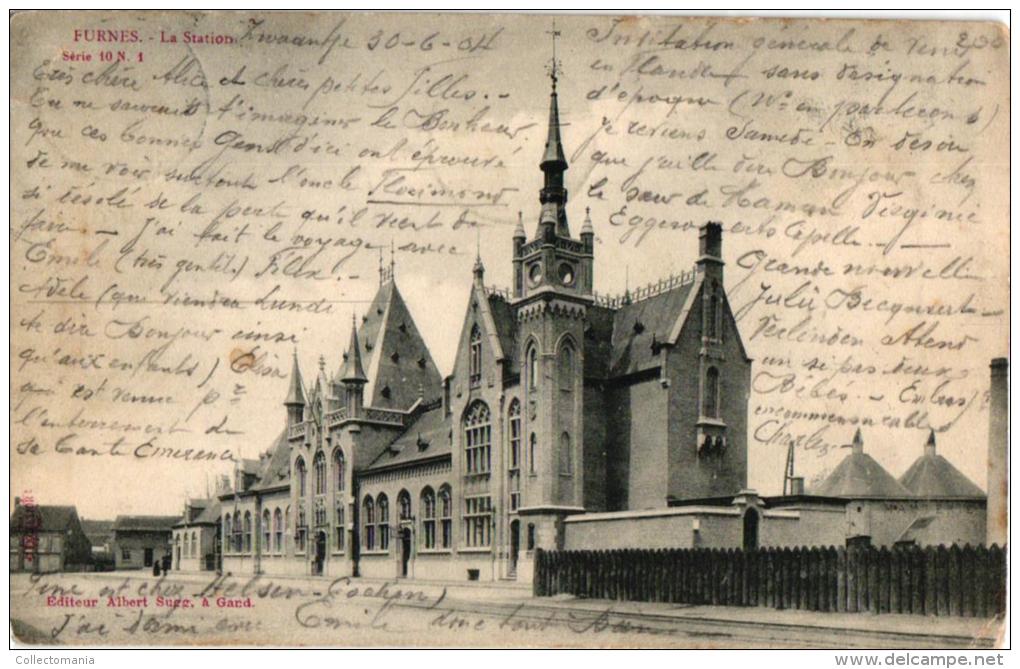 FURNES. - La Station
Série 10 N. 1
30-6-04
Très chère Alice et chères petites Filles. -
On ne saurait s'imaginer le Bonheur
que ces bonnes Gens d'ici ont éprouvé
de me voir surtout l'oncle Florimond
si désolé de la perte qu'il vient de
faire - J'ai fait le voyage avec
Emile (très gentil) Félix -
Adèle (qui viendra Lundi
te dire Bonjour ainsi
qu'aux enfants) Elisa
qui est venue pr
l'enterrement de
sa tante Emerance
Invitation générale de venir
en Flandre sans désignation
d'époque
Je reviens Samedi - On désire
que j'aille dire Bonjour chez
la sœur de Maman Virginie
Cappelle. -
Grande nouvelle
Julie Becquaert-
Verlinden Attend
un si pas deux
Bébés. -
Charles
chez
J'ai dormi avec Emile donc tout Bien
Editeur Albert Sugg, à Gand.
Collectomania
www.delcampe.net